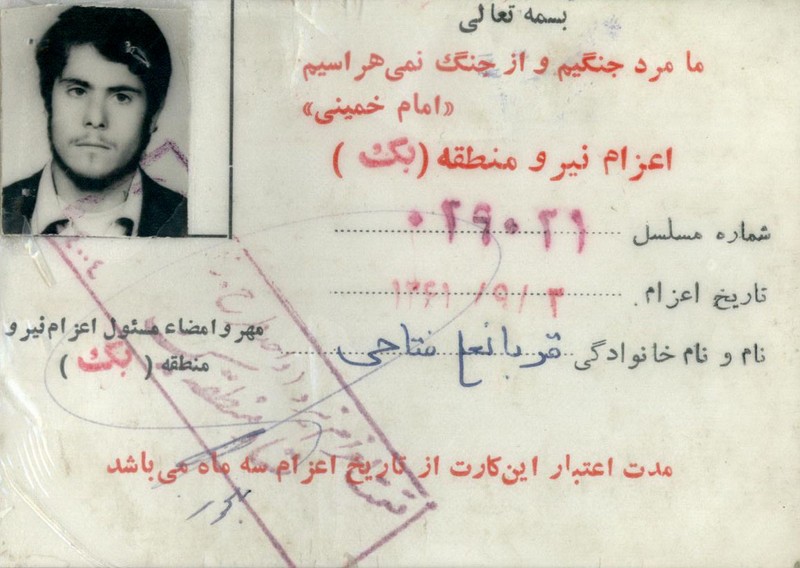 بسمه تعالی
ما مرد جنگیم و از جنگ نمی‌هراسیم
«امام خمینی»
اعزام نیرو منطقه (یک)
شماره مسلسل ۰۲۹۰۲۱
تاریخ اعزام ۱۳۶۱/۹/۳
نام و نام خانوادگی قربانعلی فتاحی
مهر و امضاء مسئول اعزام نیرو
منطقه (یک)
مدت اعتبار این کارت از تاریخ اعزام سه ماه می‌باشد